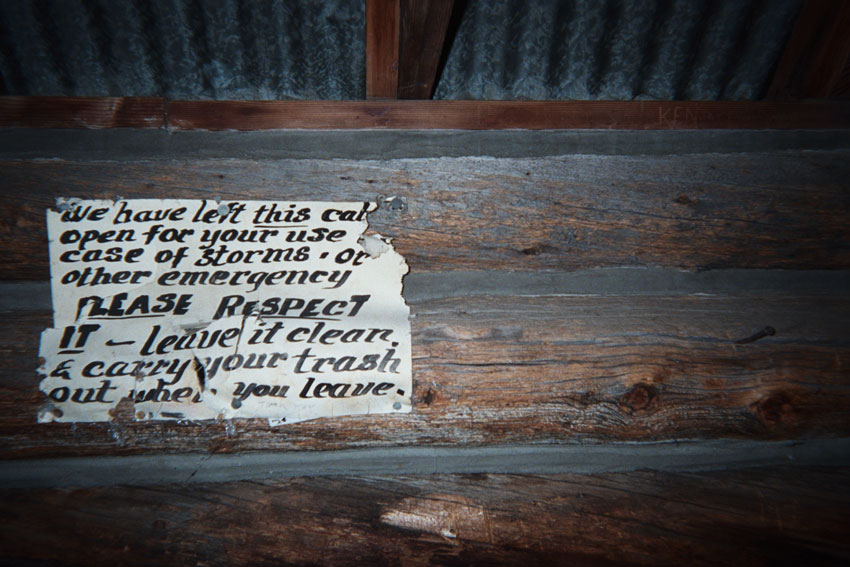 We have left this cab
open for your use
case of storms · or
other emergency
PLEASE RESPECT
IT – leave it clean,
& carry your trash
out when you leave.
KEN